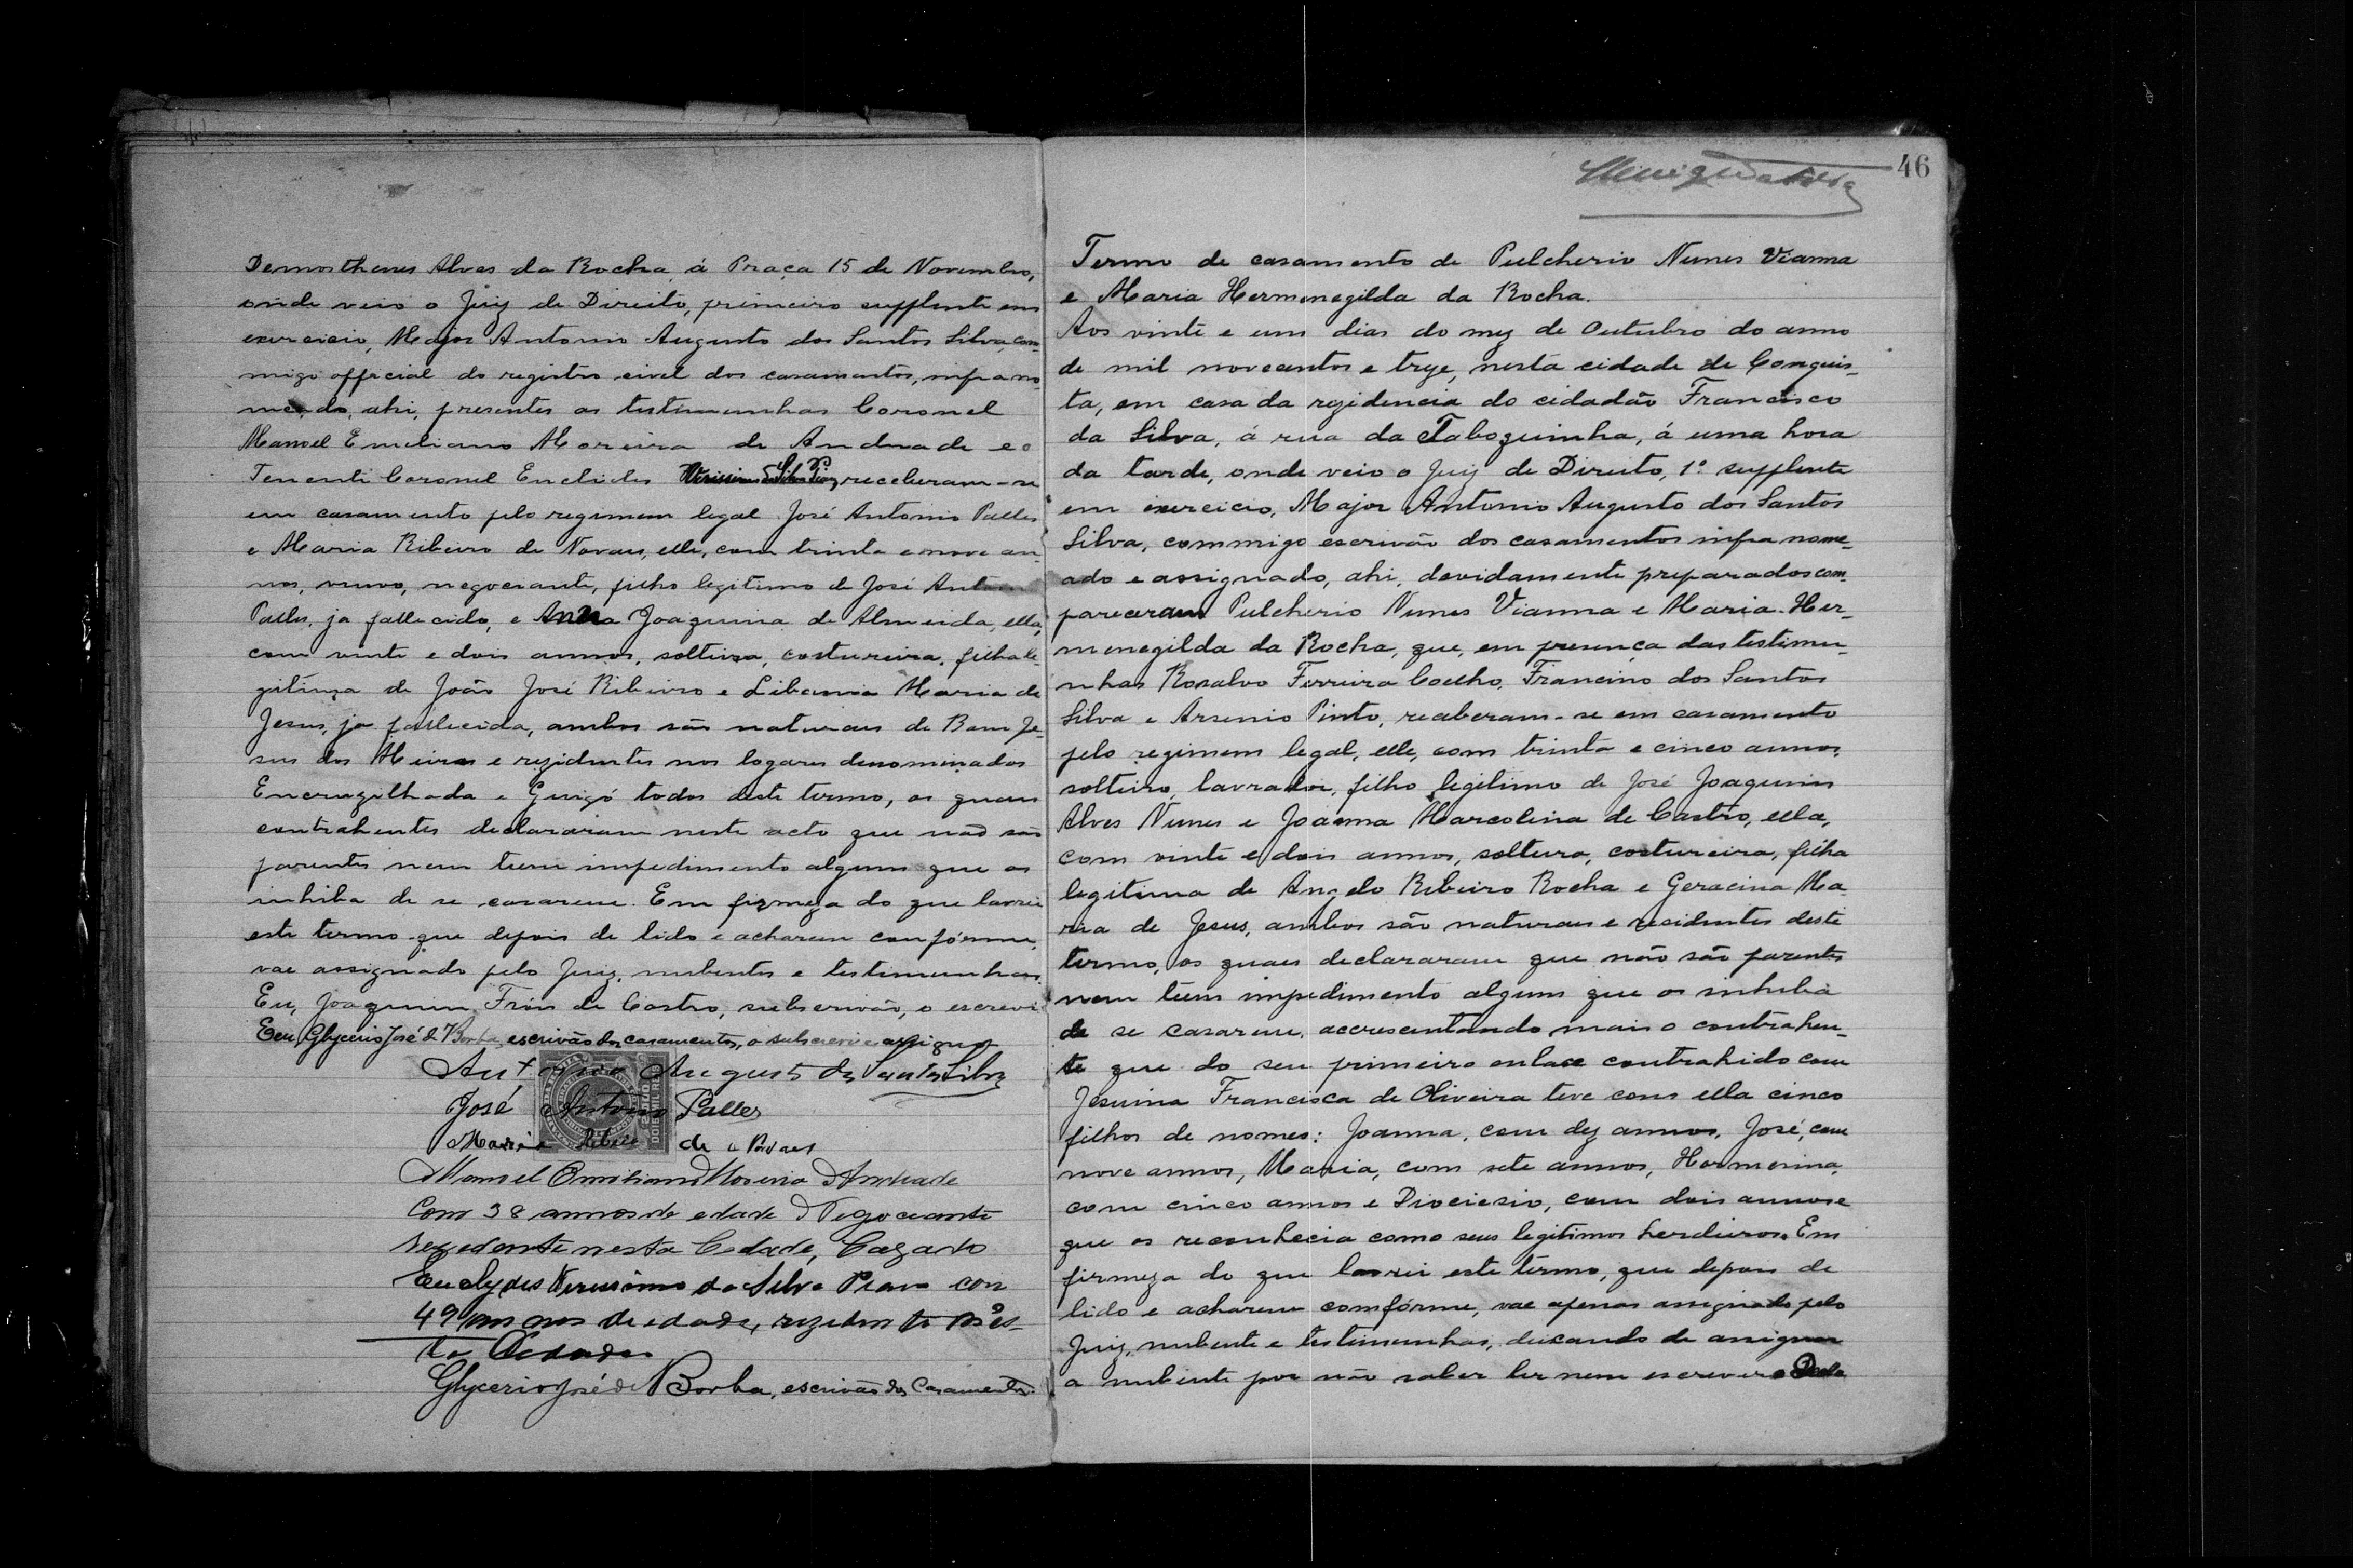 Demosthenes Alves da Rocha á Praça 15 de Novembro,
onde veio o Juiz de Direito, primeiro supplente em
exercicio, Major Antonio Augusto dos Santos Silva, com-
migo official do registro civel dos casamentos, infra no-
meado, ahi, presentes as testimunhas Coronel
Manoel Emiliano Moreira de Andrade e o
Tenente Coronel Euclides receberam-se
em casamento pelo regimem legal José Antonio Palles
e Maria Ribeiro de Novaes, elle, com trinta e nove an-
nos, viuvo, negociante, filho legitimo de José Antonio
Palles, ja fallecido, e Anna Joaquina de Almeida, ella,
com vinte e dois annos, solteira, costureira, filha le-
gitima de João José Ribeiro e Libania Maria de
Jesus, ja fallecida, ambos são naturaes de Bom Je-
sus dos Meiras e rezidentes nos logares denominados
Encruzilhada e Guigó todos deste termo, os quaes
contrahentes declararam neste acto que não são
parentes nem teem impedimento algum que os
inhiba de se casarem. Em firmeza do que lavrei
este termo que depois de lido e acharem confórme,
vae assignado pelo Juiz, nubentes e testimunhas.
Eu, Joaquim Fróis de Castro, subscrivão, o escrevi.
E eu, Glycerio José de Borba, escrivão dos casamentos, o subscrevi e assigno
Antonio Augusto dos Santos Silva
José Antonio Palles
Maria Ribeiro de Novaes
Manoel Emiliano Moreira d'Andrade
Com 38 annos de edade Negociante
rezedente nesta Cedade, Cazado
Euclydes Verissimo da Silva con
49 annos de edade, rezidente nes-
ta Cedade
Glycerio José de Borba, escrivão dos Casamentos.
46
Termo de casamento de Pulcherio Nunes Vianna
e Maria Hermenegilda da Rocha.
Aos vinte e um dias do mez de Outubro do anno
de mil novecentos e treze, nesta cidade de Conquis-
ta, em casa da rezidencia do cidadão Francisco
da Silva, á rua da Taboquinha, á uma hora
da tarde, onde veio o Juiz de Direito, 1º supplente
em exercicio, Major Antonio Augusto dos Santos
Silva, commigo escrivão dos casamentos infra nome-
ado e assignado, ahi, devidamente preparados com-
pareceram Pulcherio Nunes Vianna e Maria Her-
menegilda da Rocha, que, em presença das testimu-
nhas Rosalvo Ferreira Coelho, Francino dos Santos
Silva e Arsenio Pinto, receberam-se em casamento
pelo regimem legal, elle, com trinta e cinco annos,
solteiro, lavrador, filho legitimo de José Joaquim
Alves Nunes e Joanna Marcolina de Castro, ella,
com vinte e dois annos, solteira, costureira, filha
legitima de Angelo Ribeiro Rocha e Geracina Ma-
ria de Jesus, ambos são naturaes e residentes deste
termo, os quaes declararam que não são parentes
nem teem impedimento algum que os inhiba
de se casarem, accrescentando mais o contrahen-
te que do seu primeiro enlace contrahido com
Jesuina Francisca de Oliveira teve com ella cinco
filhos de nomes: Joanna, com dez annos, José, com
nove annos, Maria, com sete annos, Hermerina,
com cinco annos e Diociesio, com dois annos e
que os reconhecia como seus legitimos herdeiros. Em
firmeza do que lavrei este termo, que depois de
lido e acharem comfórme, vae apenas assignado pelo
Juiz, nubente e testimunhas, deixando de assignar
a nubente por não saber ler nem escrever.